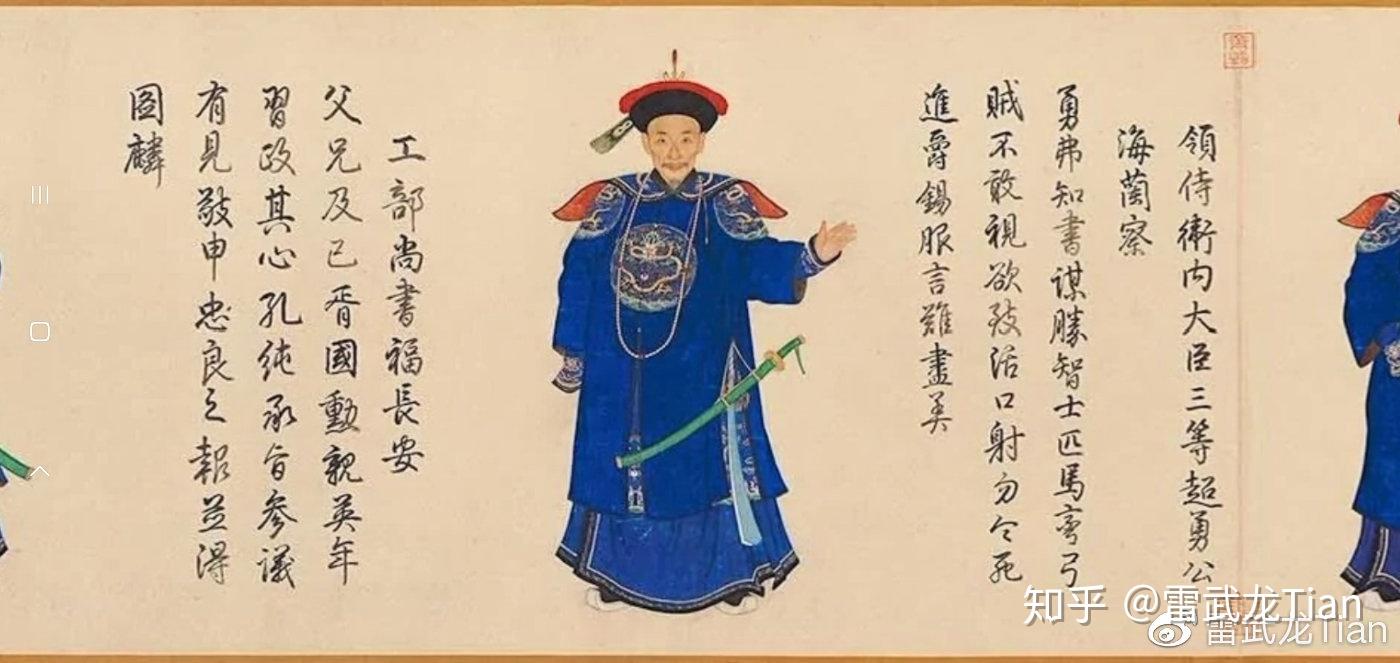 領侍衛内大臣三等超勇公
海蘭察
勇弗知書謀勝智士匹馬彎弓
賊不敢視欲致活口射勿令死
進爵錫服言難盡美
工部尚書福長安
父兄及已胥國勳親英年
習政其心孔純承旨參議
有見敬申忠良之報並得
圖麟
知乎 @雷武龙Tian
雷武龙Tian